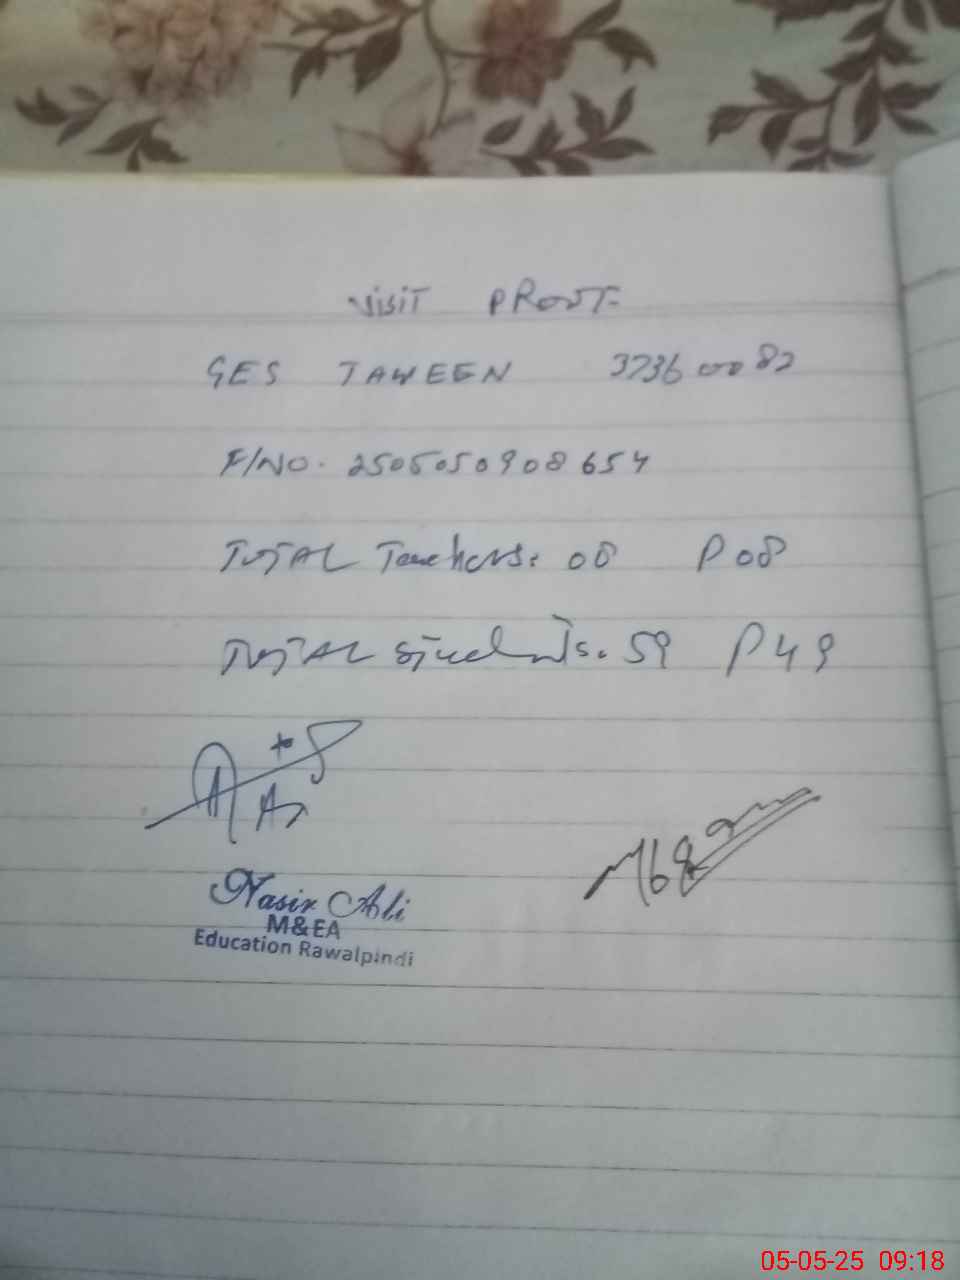 VISIT PROOF
GES TAHEEN 37360082
F/NO. 2505050908654
TOTAL Teachers. 08 P 08
TOTAL Students. 59 P 49
Nasir Ali
M&EA
Education Rawalpindi
05-05-25 09:18